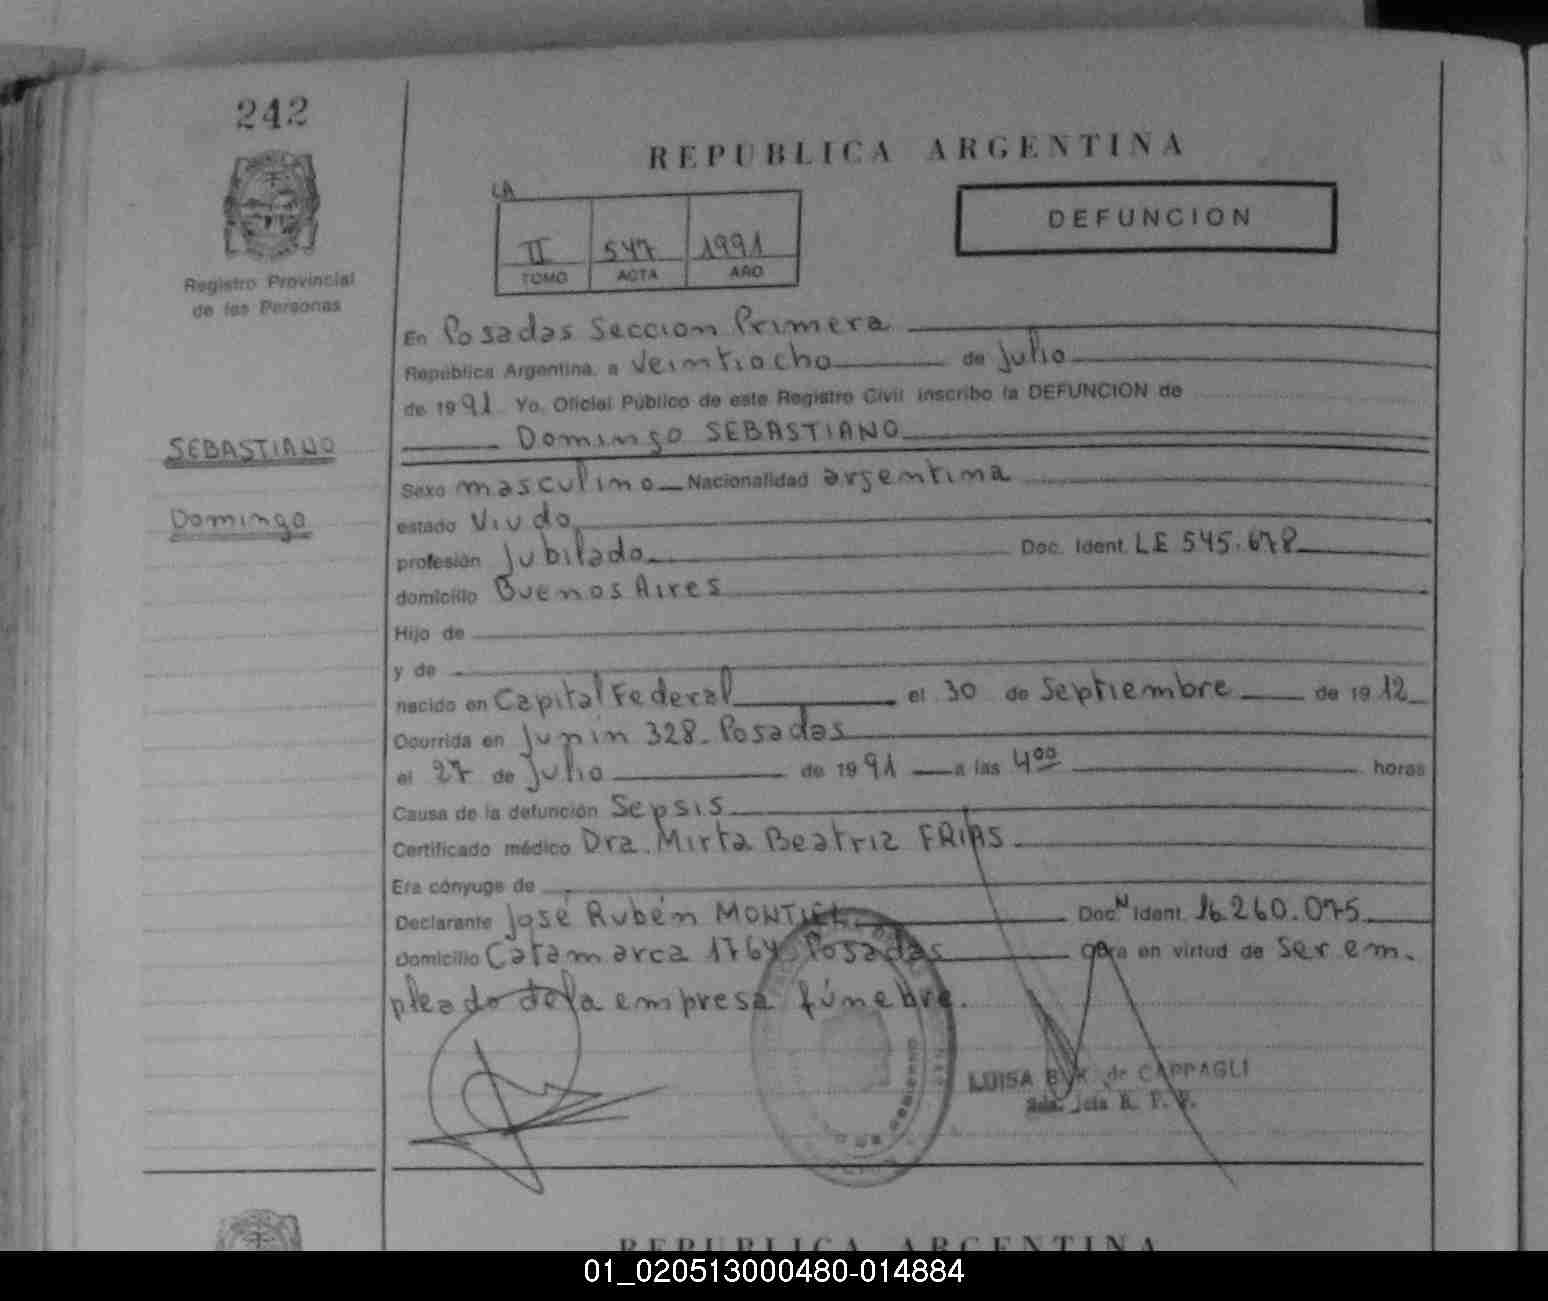 242
REPUBLICA ARGENTINA
LA
II 547 1991
TOMO ACTA AÑO
DEFUNCION
Registro Provincial
de las Personas
En Posadas Seccion Primera
República Argentina, a Veintiocho de julio
de 1991 Yo, Oficial Público de este Registro Civil inscribo la DEFUNCION de
SEBASTIANO
Domingo SEBASTIANO
Sexo masculino Nacionalidad argentina
Domingo
estado Viudo
profesión jubilado Doc. Ident. LE 545.678
domicilio Buenos Aires
Hijo de
y de
nacido en Capital Federal el 30 de Septiembre de 1912
Ocurrida en junin 328 - Posadas
el 27 de julio de 1991 a las 4 00 horas
Causa de la defunción Sepsis
Certificado médico Dra. Mirta Beatriz FRIAS
Era cónyuge de
Declarante josé Rubén MONTIEL Doc N Ident. 16.260.075
Domicilio Catamarca 1764 Posadas obra en virtud de ser em-
pleado de la empresa fúnebre.
LUISA B. de CAPPAGLI
REPUBLICA ARGENTINA
01_020513000480-014884